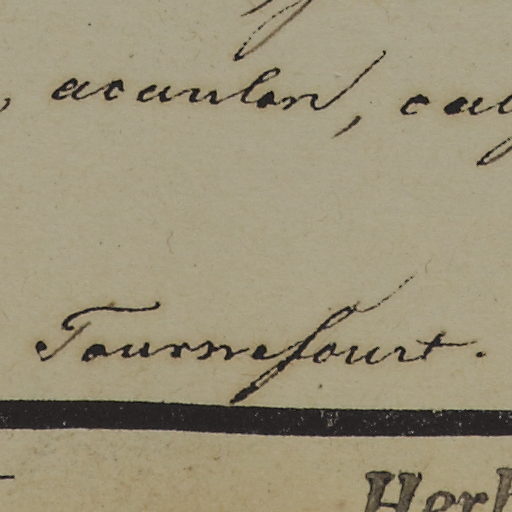 , acaulon, cay
Tournefourt.
Herb